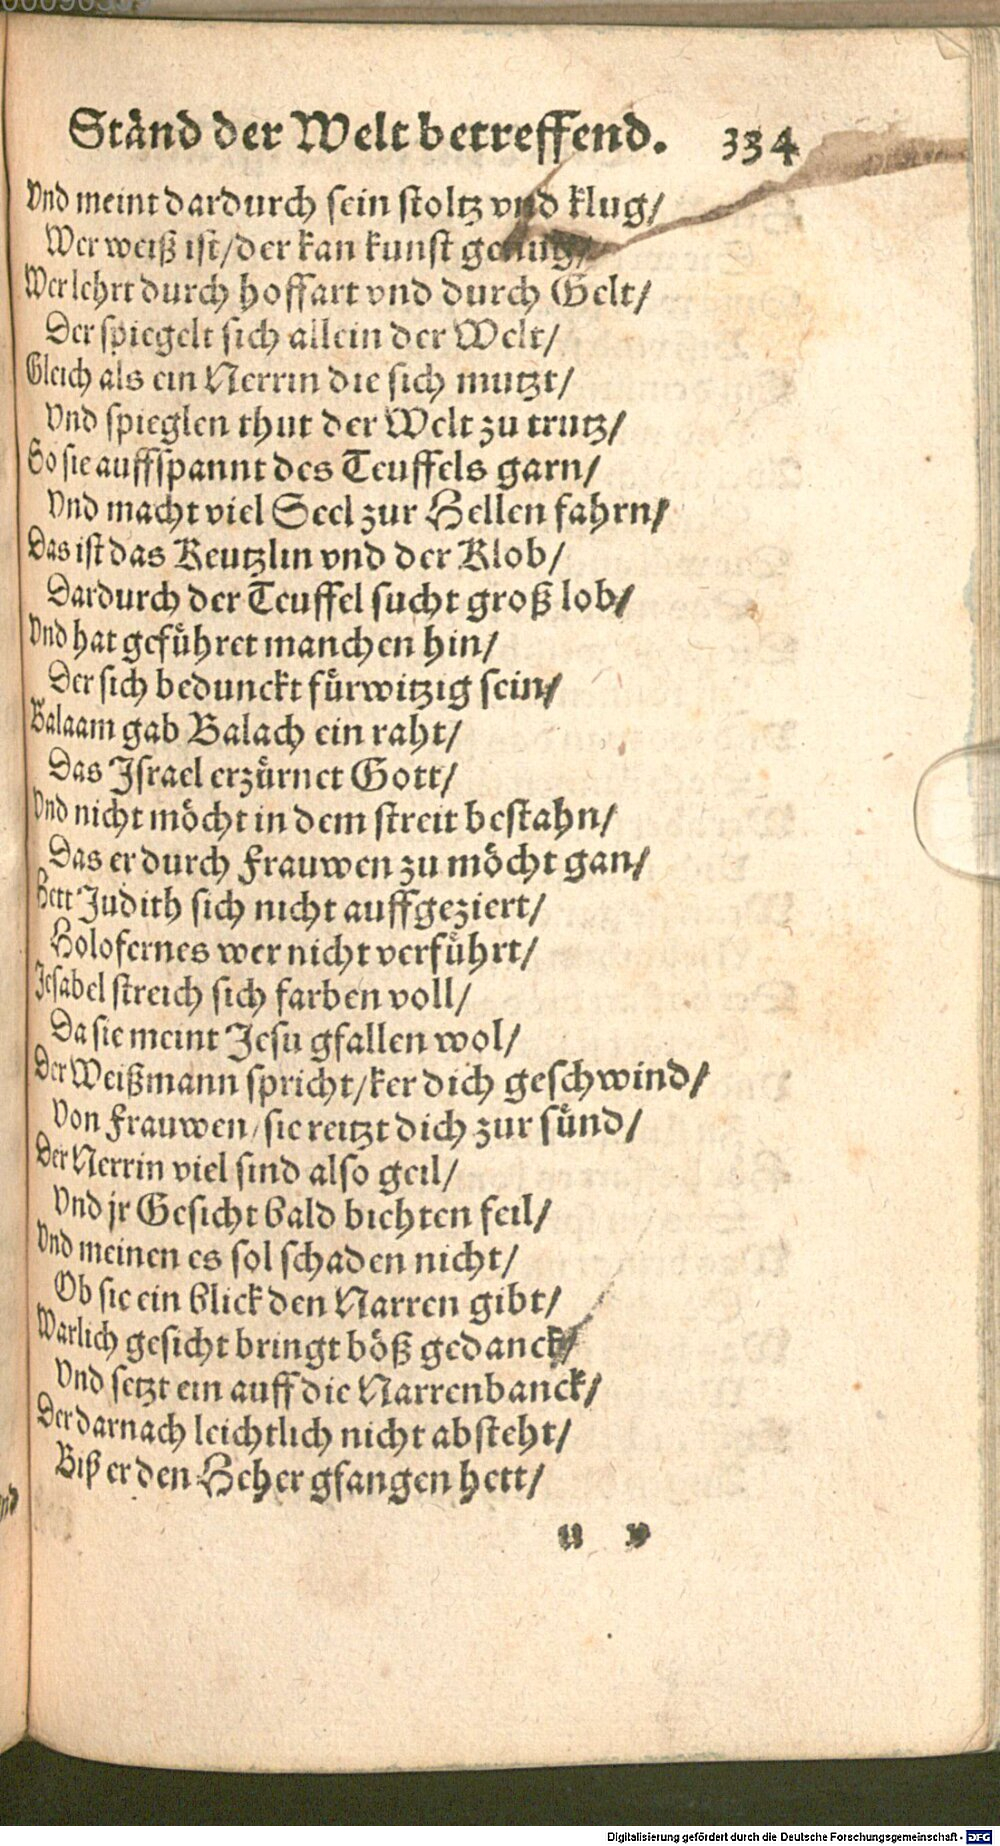 Stånd der Welt betreffend. 334
Vnd meint dardurch sein stoltz vnd klug/
Wer weiß ist/der kan kunst genug/
Wer lehrt durch hoffart vnd durch Gelt/
Der spiegelt sich allein der Welt/
Gleich als ein Nerrin die sich mutzt/
Vnd spieglen thut der Welt zu trutz/
So sie auffspannt des Teuffels garn/
Vnd macht viel Seel zur Hellen fahrn/
Das ist das Keutzlin vnd der Klob/
Dardurch der Teuffel sucht groß lob/
Vnd hat gefůhret manchen hin/
Der sich bedunckt fůrwitzig sein/
Balaam gab Balach ein raht/
Das Israel erzůrnet Gott/
Vnd nicht mőcht in dem streit bestahn/
Das er durch Frauwen zu mőcht gan/
Hett Judith sich nicht auffgeziert/
Holofernes wer nicht verfůhrt/
Jesabel streich sich farben voll/
Da sie meint Jesu gfallen wol/
Der Weißmann spricht/ker dich geschwind/
Von Frauwen/sie reitzt dich zur sůnd/
Der Nerrin viel sind also geil/
Vnd jr Gesicht bald biehten feil/
Vnd meinen es sol schaden nicht/
Ob sie ein blick den Narren gibt/
Warlich gesicht bringt bőß gedanck/
Vnd setzt ein auff die Narrenbanck/
Der darnach leichtlich nicht absteht/
Biß er den Heher gfangen hett/
u v
Digitalisierung gefördert durch die Deutsche Forschungsgemeinschaft - DFG